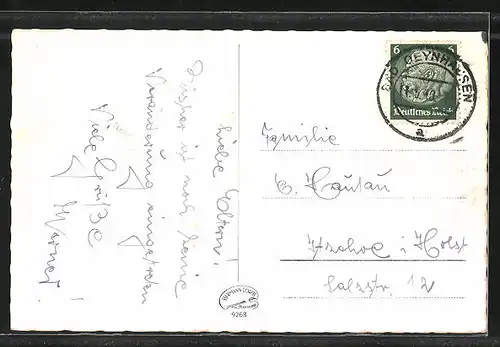 Liebe Eltern!
Bisher ist noch keine
Veränderung eingetreten
Viele Grüße
Werner!
6 6
Deutsches Reich
BAD OEYNHAUSEN
a
Familie
Itzehoe i. Holst
Salzstr. 12
9268